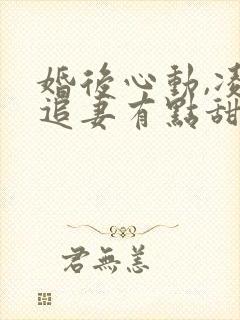 婚後心動,
追妻有點甜
君無恙